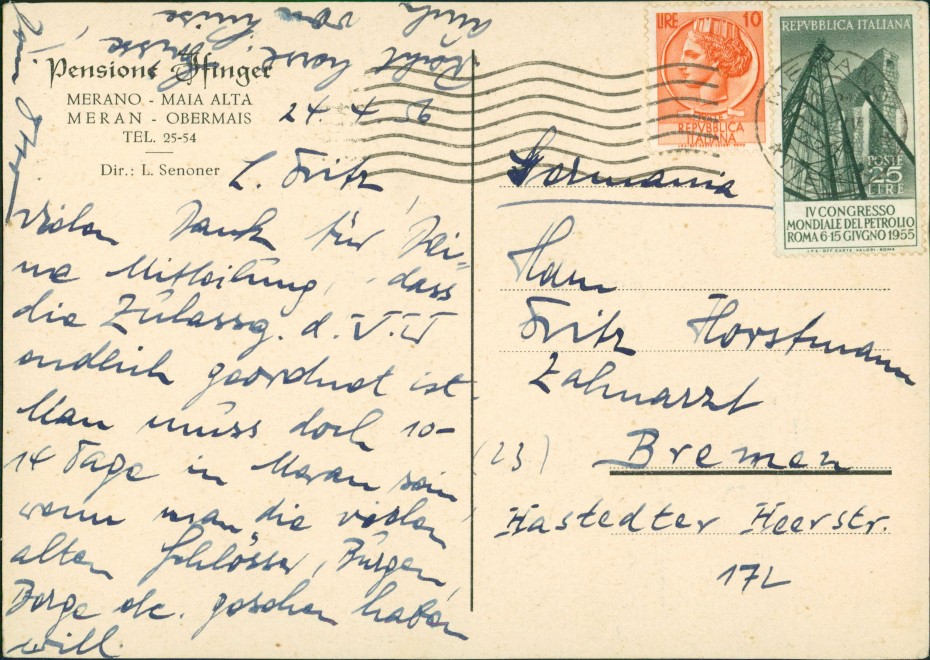 Pensione Ifinger
MERANO - MAIA ALTA
MERAN - OBERMAIS
TEL. 25-54
Dir.: L. Senoner
24.4.56
L. Fritz
vielen Dank für Dei-
ne Mitteilung, dass
die Zulassg. d.
endlich geordnet ist.
Man muss doch 10-
14 Tage in Meran sein
wenn man die vielen
alten Schlösser, Burgen,
Berge etc. gesehen haben
will.
Recht
auch von
LIRE 10
REPVBBLICA
ITALIANA
REPVBBLICA ITALIANA
POSTE
25
LIRE
IV CONGRESSO
MONDIALE DEL PETROLIO
ROMA 6-15 GIVGNO 1955
Germania
Herrn
Fritz Horstmann
Zahnarzt
(23) Bremen
Hastedter Heerstr.